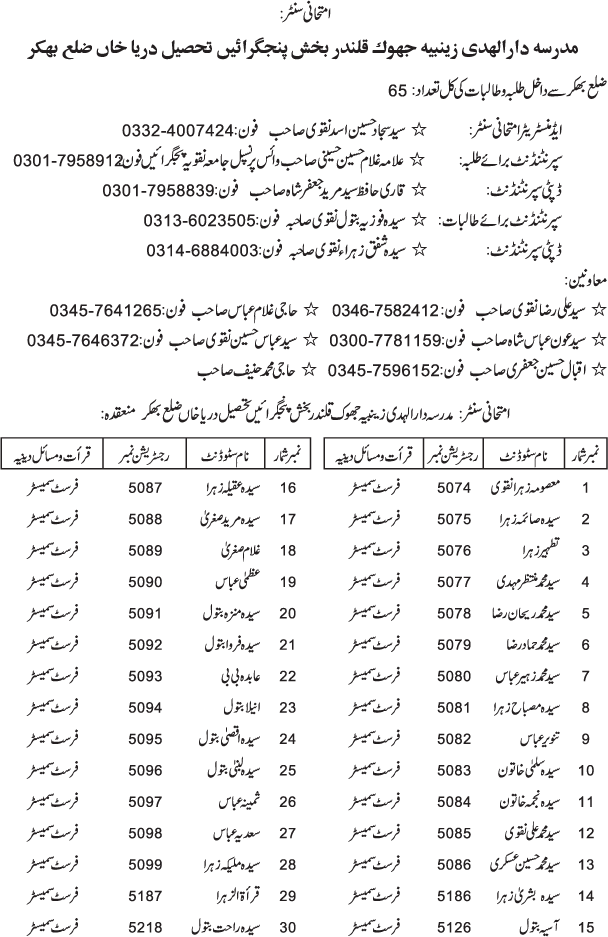 امتحانی سنٹر:
مدرسہ دارالھدی زینبیہ جھوک قلندر بخش پنجگرائیں تحصیل دریا خاں ضلع بھکر
ضلع بھکر سے داخل طلبہ و طالبات کی کل تعداد: 65
ایڈمنسٹریٹر امتحانی سنٹر: ☆ سید سجاد حسین اسد نقوی صاحب فون: 0332-4007424
سپرنٹنڈنٹ برائے طلبہ: ☆ علامہ غلام حسین حسینی صاحب وائس پرنسپل جامعہ نقویہ پنجگرائیں فون 0301-7958912
ڈپٹی سپرنٹنڈنٹ: ☆ قاری حافظ سید مرید جعفر شاہ صاحب فون: 0301-7958839
سپرنٹنڈنٹ برائے طالبات: ☆ سیدہ فوزیہ بتول نقوی صاحبہ فون: 0313-6023505
ڈپٹی سپرنٹنڈنٹ: ☆ سیدہ شفق زہراء نقوی صاحبہ فون: 0314-6884003
معاونین:
☆ سید علی رضا نقوی صاحب فون: 0346-7582412 ☆ حاجی غلام عباس صاحب فون: 0345-7641265
☆ سید عون عباس شاہ صاحب فون: 0300-7781159 ☆ سید عباس حسین نقوی صاحب فون: 0345-7646372
☆ اقبال حسین جعفری صاحب فون: 0345-7596152 ☆ حاجی محمد حنیف صاحب
امتحانی سنٹر: مدرسہ دارالہدی زینبیہ جھوک قلندر بخش پنجگرائیں تحصیل دریا خاں ضلع بھکر منعقدہ:
نمبر شمار نام سٹوڈنٹ رجسٹریشن نمبر قرأت و مسائل دینیہ نمبر شمار نام سٹوڈنٹ رجسٹریشن نمبر قرأت و مسائل دینیہ
1 معصومہ زہرا نقوی 5074 فرسٹ سمیسٹر 16 سیدہ عقیلہ زہرا 5087 فرسٹ سمیسٹر
2 سیدہ صائمہ زہرا 5075 فرسٹ سمیسٹر 17 سیدہ مرید صغریٰ 5088 فرسٹ سمیسٹر
3 تطہیر زہرا 5076 فرسٹ سمیسٹر 18 غلام صغریٰ 5089 فرسٹ سمیسٹر
4 سید محمد منتظر مہدی 5077 فرسٹ سمیسٹر 19 عظمیٰ عباس 5090 فرسٹ سمیسٹر
5 سید محمد ریحان رضا 5078 فرسٹ سمیسٹر 20 سیدہ منزہ بتول 5091 فرسٹ سمیسٹر
6 سید محمد حماد رضا 5079 فرسٹ سمیسٹر 21 سیدہ فروا بتول 5092 فرسٹ سمیسٹر
7 سید محمد زہیر عباس 5080 فرسٹ سمیسٹر 22 عابدہ بی بی 5093 فرسٹ سمیسٹر
8 سیدہ مصباح زہرا 5081 فرسٹ سمیسٹر 23 انیلا بتول 5094 فرسٹ سمیسٹر
9 تنویر عباس 5082 فرسٹ سمیسٹر 24 سیدہ اقصیٰ بتول 5095 فرسٹ سمیسٹر
10 سیدہ سلمیٰ خاتون 5083 فرسٹ سمیسٹر 25 سیدہ لبنیٰ بتول 5096 فرسٹ سمیسٹر
11 سیدہ نجمہ خاتون 5084 فرسٹ سمیسٹر 26 ثمینہ عباس 5097 فرسٹ سمیسٹر
12 سید محمد علی نقوی 5085 فرسٹ سمیسٹر 27 سعدیہ عباس 5098 فرسٹ سمیسٹر
13 سید محمد حسین عسکری 5086 فرسٹ سمیسٹر 28 سیدہ ملیکہ زہرا 5099 فرسٹ سمیسٹر
14 سیدہ بشریٰ زہرا 5186 فرسٹ سمیسٹر 29 قرأۃ الزہرا 5187 فرسٹ سمیسٹر
15 آسیہ بتول 5126 فرسٹ سمیسٹر 30 سیدہ راحت بتول 5218 فرسٹ سمیسٹر